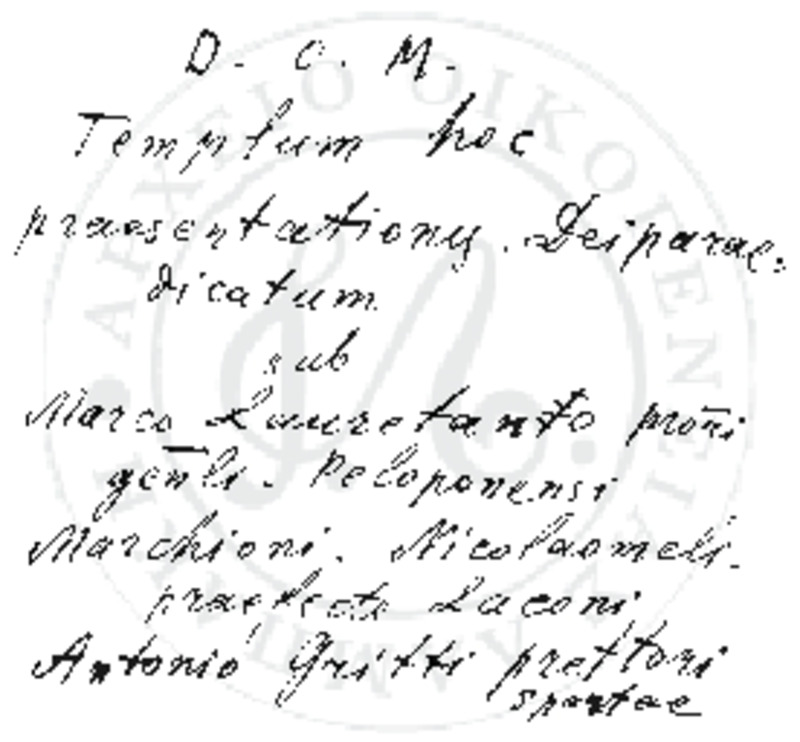 D. O. M.
Templum hoc
praesentationy. Deiparae.
dicatum
sub
Marco Lauretanto pron̄i
gen̄li. Peloponensi
Marchioni. Nicolaomeli.
praefecto Laconi
Antonio Gritti prettori
spontae
ΑΡΧΕΙΟ ΟΙΚΟΓΕΝΕΙΑΣ